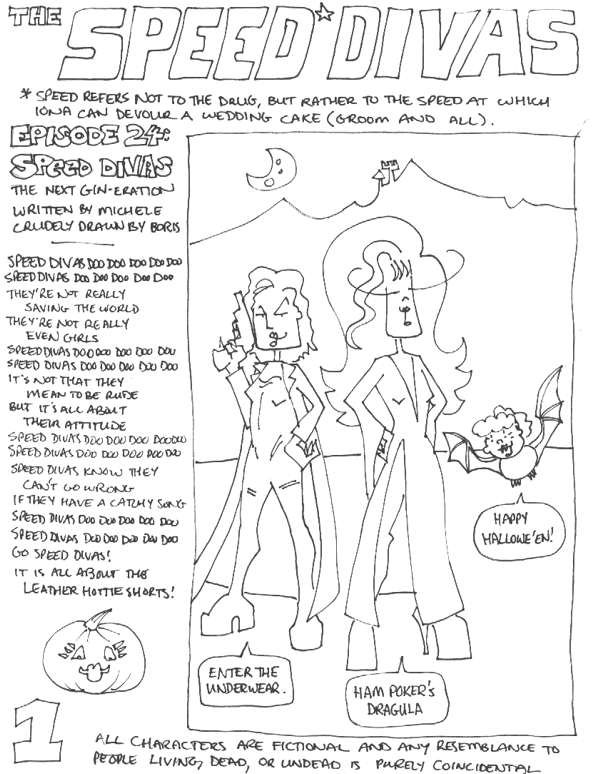 THE SPEED* DIVAS
* SPEED REFERS NOT TO THE DRUG, BUT RATHER TO THE SPEED AT WHICH
IONA CAN DEVOUR A WEDDING CAKE (GROOM AND ALL).
EPISODE 24:
SPEED DIVAS
THE NEXT GIN-ERATION
WRITTEN BY MICHELE
CRUDELY DRAWN BY BORIS
SPEED DIVAS DOO DOO DOO DOO DOO
SPEED DIVAS DOO DOO DOO DOO DOO
THEY'RE NOT REALLY
SAVING THE WORLD
THEY'RE NOT REALLY
EVEN GIRLS
SPEED DIVAS DOO DOO DOO DOO DOO
SPEED DIVAS DOO DOO DOO DOO DOO
IT'S NOT THAT THEY
MEAN TO BE RUDE
BUT IT'S ALL ABOUT
THEIR ATTITUDE
SPEED DIVAS DOO DOO DOO DOO DOO
SPEED DIVAS DOO DOO DOO DOO DOO
SPEED DIVAS KNOW THEY
CAN'T GO WRONG
IF THEY HAVE A CATCHY SONG
SPEED DIVAS DOO DOO DOO DOO DOO
SPEED DIVAS DOO DOO DOO DOO DOO
GO SPEED DIVAS!
IT IS ALL ABOUT THE
LEATHER HOTTIE SHORTS!
HAPPY
HALLOWE'EN!
ENTER THE
UNDERWEAR.
HAM POKER'S
DRAGULA
1
ALL CHARACTERS ARE FICTIONAL AND ANY RESEMBLANCE TO
PEOPLE LIVING, DEAD, OR UNDEAD IS PURELY COINCIDENTAL